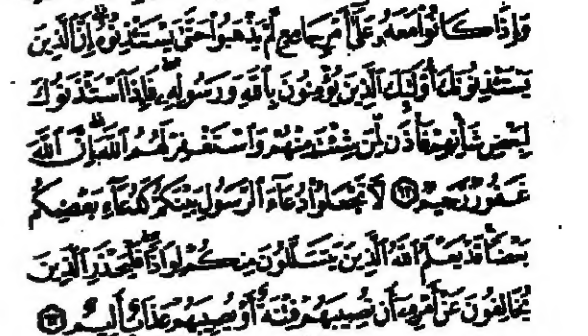 وَإِذَا كَانُوا۟ مَعَهُۥ عَلَىٰٓ أَمْرٍ جَامِعٍ لَّمْ يَذْهَبُوا۟ حَتَّىٰ يَسْتَـْٔذِنُوهُ إِنَّ ٱلَّذِينَ
يَسْتَـْٔذِنُونَكَ أُو۟لَـٰٓئِكَ ٱلَّذِينَ يُؤْمِنُونَ بِٱللَّهِ وَرَسُولِهِۦ فَإِذَا ٱسْتَـْٔذَنُوكَ
لِبَعْضِ شَأْنِهِمْ فَأْذَن لِّمَن شِئْتَ مِنْهُمْ وَٱسْتَغْفِرْ لَهُمُ ٱللَّهَ إِنَّ ٱللَّهَ
غَفُورٌ رَّحِيمٌ ٦٢ لَّا تَجْعَلُوا۟ دُعَآءَ ٱلرَّسُولِ بَيْنَكُمْ كَدُعَآءِ بَعْضِكُم
بَعْضًا قَدْ يَعْلَمُ ٱللَّهُ ٱلَّذِينَ يَتَسَلَّلُونَ مِنكُمْ لِوَاذًا فَلْيَحْذَرِ ٱلَّذِينَ
يُخَالِفُونَ عَنْ أَمْرِهِۦٓ أَن تُصِيبَهُمْ فِتْنَةٌ أَوْ يُصِيبَهُمْ عَذَابٌ أَلِيمٌ ٦٣